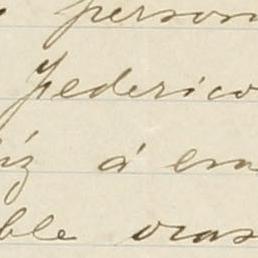 person
Federico
iz á em
ble oras